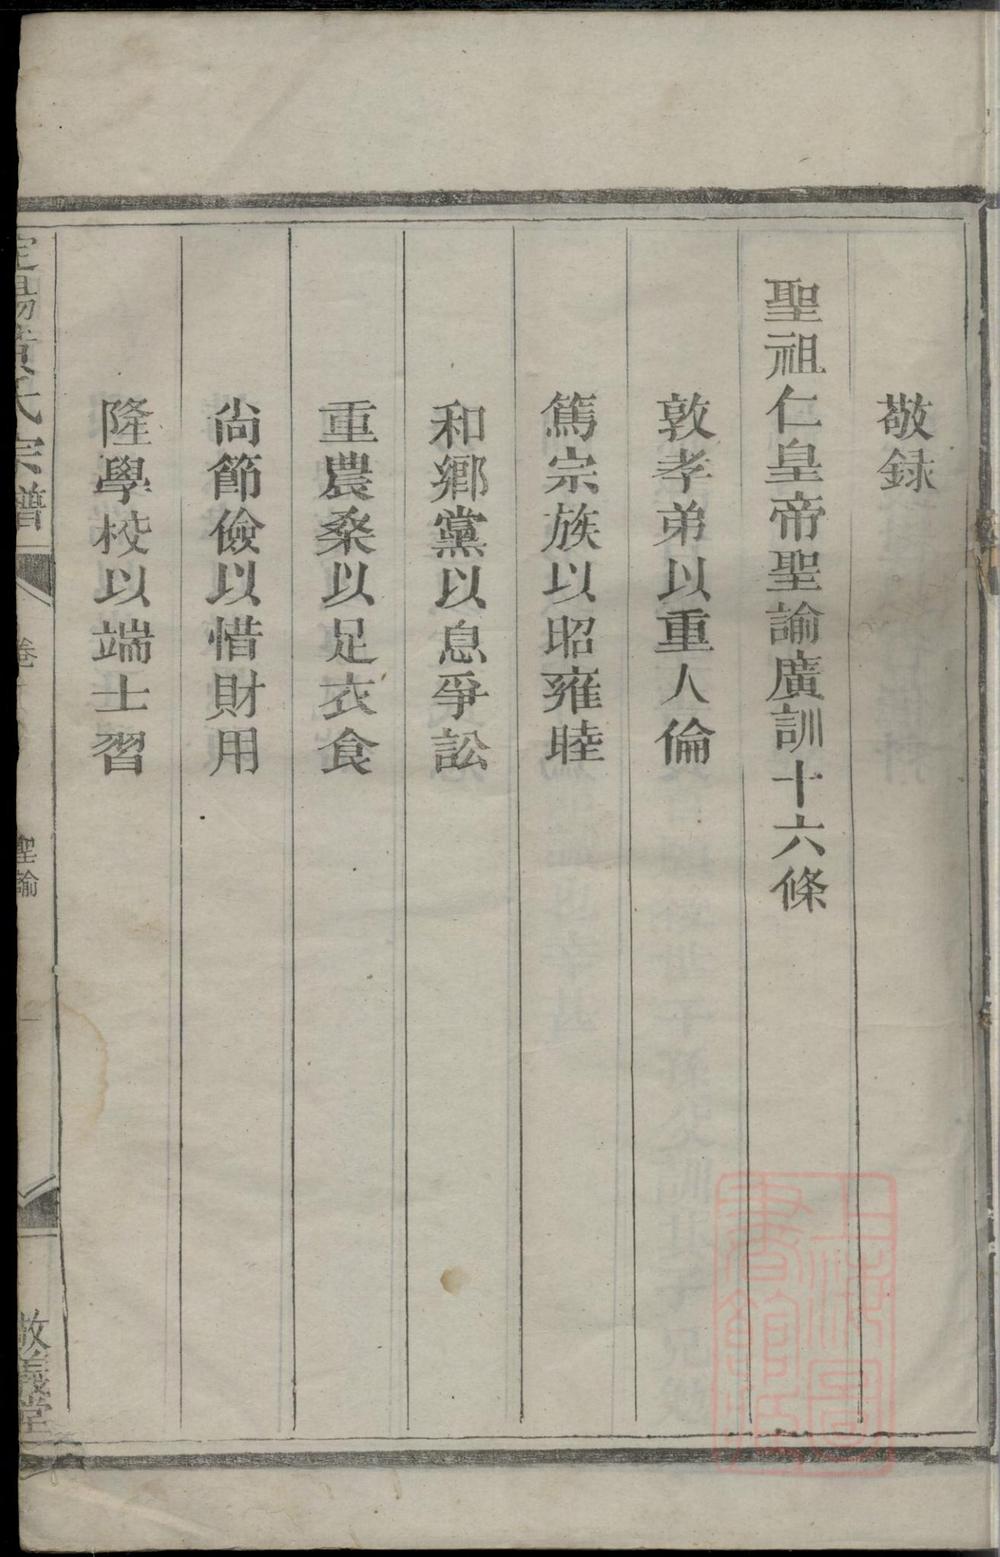 敬録
聖祖仁皇帝聖諭廣訓十六條
敦孝弟以重人倫
篤宗族以昭雍睦
和鄉黨以息爭訟
重農桑以足衣食
尙節儉以惜財用
隆學校以端士習
氏宗譜
聖諭
敬義堂
上海圖書館藏